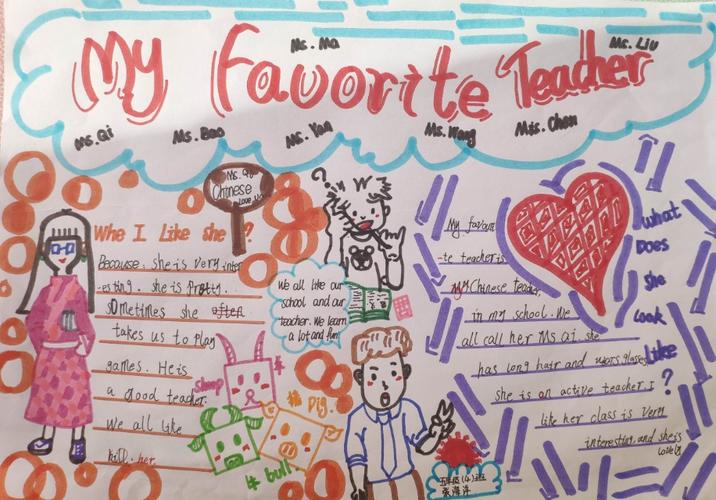 Ms. Ma
Ms. Liu
My Favorite Teacher
Ms. Qi
Ms. Bao
Ms. Yan
Ms. Wang
Mis. Chen
Ms. Qi
Chinese
Love You
Whe I Like she ?
Because, she is very inter
-esting. she is Pretty.
sometimes she often
takes us to Play
games. He is
a Good teacher.
We all like
her.
We all like our
school and our
teacher. We learn
a lot and fun
sheep
羊
猪 Pig.
牛 bull
My favour
-te teacher is
my Chinese teacher,
in my school. We
all call her Ms Qi. she
has long hair and wears glasses
she is an active teacher. I
like her class is very
interesting and she is
What
Does
She
Look
Like
?
五年级(4)班
张海洋